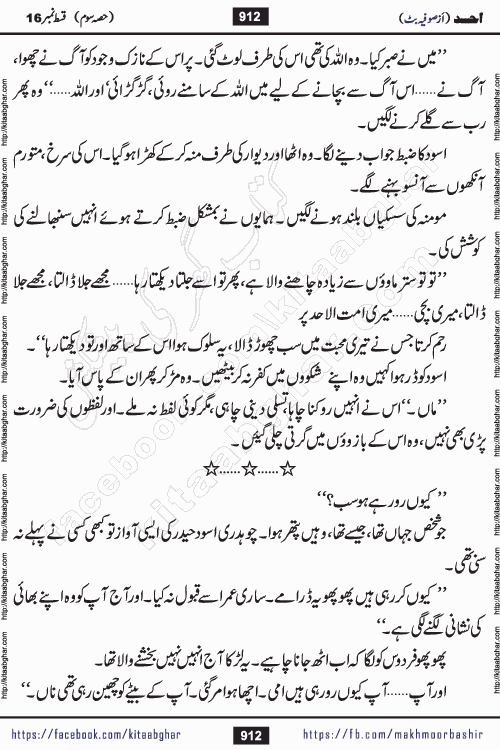 احد (از صوفیہ بٹ) 912 (حصہ سوم) قسط نمبر 16
”میں نے صبر کیا۔ وہ اللہ کی تھی اس کی طرف لوٹ گئی۔ پر اس کے نازک وجود کو آگ نے چھوا،
آگ نے......اس آگ سے بچانے کے لیے میں اللہ کے سامنے روئی، گڑگڑائی‘ اور اللہ......“ وہ پھر
رب سے گلے کرنے لگیں۔
اسود کا ضبط جواب دینے لگا۔ وہ اٹھا اور دیوار کی طرف منہ کر کے کھڑا ہو گیا۔ اس کی سرخ، متورم
آنکھوں سے آنسو بہنے لگے۔
مومنہ کی سسکیاں بلند ہونے لگیں۔ ہمایوں نے بمشکل ضبط کرتے ہوئے انہیں سنبھالنے کی
کوشش کی۔
”تو تو ستر ماؤوں سے زیادہ چاھنے والا ہے، پھر تو اسے جلتا دیکھتا رہا......مجھے جلا ڈالتا، مجھے جلا
ڈالتا، میری بچی......میری امت الاحد پر
رحم کرتا جس نے تیری محبت میں سب چھوڑ ڈالا، یہ سلوک ہوا اس کے ساتھ اور تو دیکھتا رہا“۔
اسود کو ڈر ہوا کہیں وہ اپنے شکووں میں کفر نہ کر بیٹھیں۔ وہ مڑ کر پھر ان کے پاس آیا۔
”ماں۔“ اس نے انہیں روکنا چاہا، تسلی دینی چاہی، مگر کوئی لفظ نہ ملے۔ اور لفظوں کی ضرورت
پڑی بھی نہیں، وہ اس کے بازوؤں میں گرتی چلی گئیں۔
☆......☆......☆
”کیوں رو رہے ہو سب؟“
جو شخص جہاں تھا، جیسے تھا، وہیں پتھر ہوا۔ چوہدری اسود حیدر کی ایسی آواز تو کبھی کسی نے پہلے نہ
سنی تھی۔
”کیوں کر رہی ہیں پھوپھو یہ ڈرامے۔ ساری عمر اسے قبول نہ کیا۔ اور آج آپ کو وہ اپنے بھائی
کی نشانی لگنے لگی ہے۔“
پھوپھو فردوس کو لگا کہ اب اٹھ جانا چاہیے۔ یہ لڑکا آج انہیں نہیں بخشنے والا تھا۔
اور آپ......آپ کیوں رو رہی ہیں امی۔ اچھا ہوا مر گئی۔ آپ کے بیٹے کو چھین رہی تھی ناں۔“
https://facebook.com/kitaabghar 912 https://fb.com/makhmoorbashir
http://kitaabghar.com